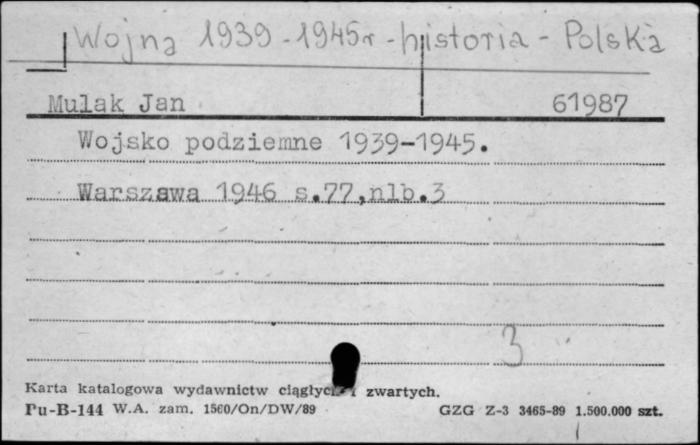 Wojna 1939-1945r - historia - Polska
Mulak Jan 61987
Wojsko podziemne 1939-1945.
Warszawa 1946 s.77,nlb.3
3
Karta katalogowa wydawnictw zwartych.
Pu-B-144 W.A. zam. 1560/On/DW/89 GZG Z-3 3465-89 1.500.000 szt.